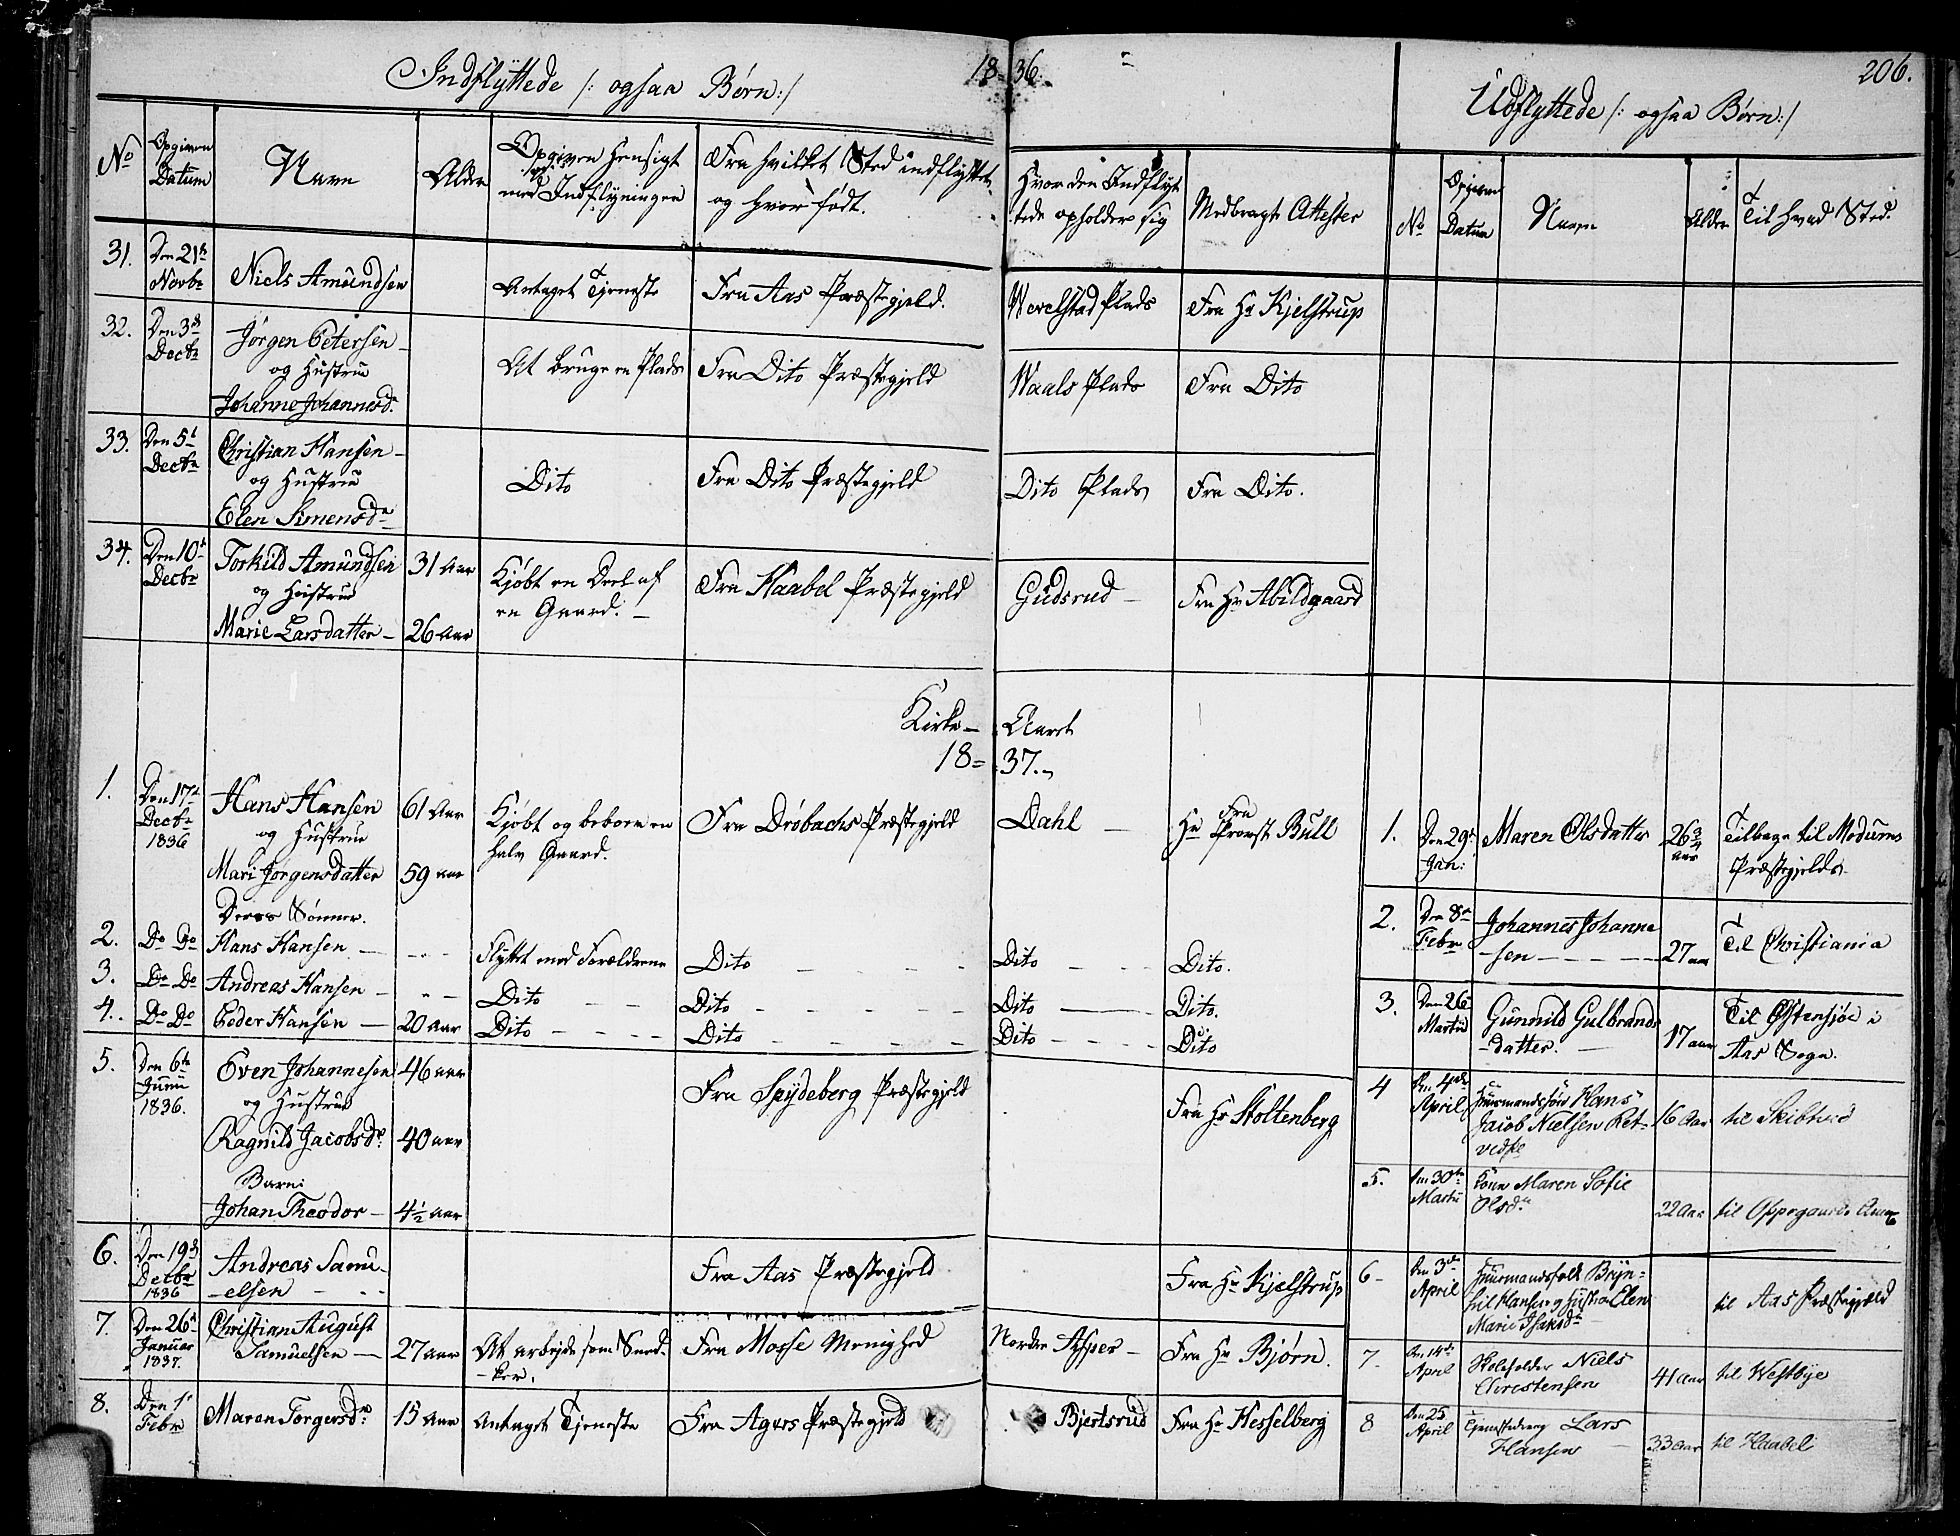 Indflyttede /: ogsaa Børn :/
18
36.
Udflyttede /: ogsaa Børn :/
206.
No
Opgiven Datum
Navn
Alder
Opgiven Hensigt
med Indflytningen
Fra hvilket Sted indflyttet,
og hvor født.
Hvor den Indflyt
tede opholder sig
Medbragte Attester
No
Opgiven Datum
Navn
Alder
Til hvad Sted.
31. Den 21de Novbr Niels Amundsen Antaget Tjeneste Fra Aas Præstegjeld. Werelstad Plads Fra Hr Kjelstrup
32. Den 3de Decbr Jørgen Petersen
og Hustrue At bruge en Plads Fra Dito Præstegjeld Waals Plads Fra Dito
Johanne Johannesdr
33. Den 5te Decbr Christian Hansen
og Hustrue Dito Fra Dito Præstegjeld Dito Plads Fra Dito.
Elen Simensdr
34. Den 10de Decbr Torkild Amundsen 31 Aar Kjøbt en Deel af Fra Haabel Præstegjeld Gudsrud Fra Hr Abildgaard
og Hustrue en Gaard.
Marie Larsdatter 26 Aar
Kirke- Aaret
18= 37.
1. Den 17de Decbr 1836 Hans Hansen 61 Aar Kjøbt og beboer en Fra Drøbachs Præstegjeld Dahl Fra
og Hustrue halv Gaard. Hr Provst Bull
Mari Jørgensdatter 59 aar
Deres Sønner.
2. Do Do Hans Hansen Flyttet med Forældrene Dito Dito Dito.
3. Do Do Andreas Hansen Dito Dito Dito Dito.
4. Do Do Peder Hansen 20 Aar Dito Dito Dito Dito
5. Den 6te Juni 1836. Even Johannesen 46 aar Fra Spydeberg Præstegjeld Fra Hr Stoltenberg
og Hustrue
Ragnild Jacobsdr 40 aar
Barn:
Johan Theodor 4 1/2 aar
6. Den 19de Decbr 1836 Andreas Samu
-elsen Fra Aas Præstegjeld Fra Hr Kjelstrup
7. Den 26de Januar 1837. Christian August
Samuelsen 27 aar At arbejde som Sned
-ker. Fra Mosse Menighed Nordre Asper Fra Hr Bjørn.
8. Den 1ste Febr Maren Torgersdr 15 Aar Antaget Tjeneste Fra Agers Præstegjeld Bjertsrud Fra Hr Hesselberg
1. Den 29de Jan: Maren Olsdatter 26 3/4 aar Tilbage til Modums
Præstegjeld
2. Den 8de Febr Johannes Johanne
-sen 27 aar Til Christiania
3. Den 26de Martii Gunnild Gulbrands
-datter. 17 aar Til Østensjøe i
Aas Sogn.
4 Den 4de April Huusmandssøn Hans
Jacob Nielsen 16 Aar til Skibtvedt
5. Den 30te Martii Maren Sofie
Olsdr 22 Aar til Oppegaards
6 Den 3de April Huusmandsfolk Bryn=
hil Hansen og Hustru Elen
Marie Isaksdr til Aas Præstegjæld
7. Den 14de April Skoleholder Niels
Christensen 41 Aar til Westbye
8 Den 25 April Tjenestedreng Lars
Hansen 33 Aar til Haabel